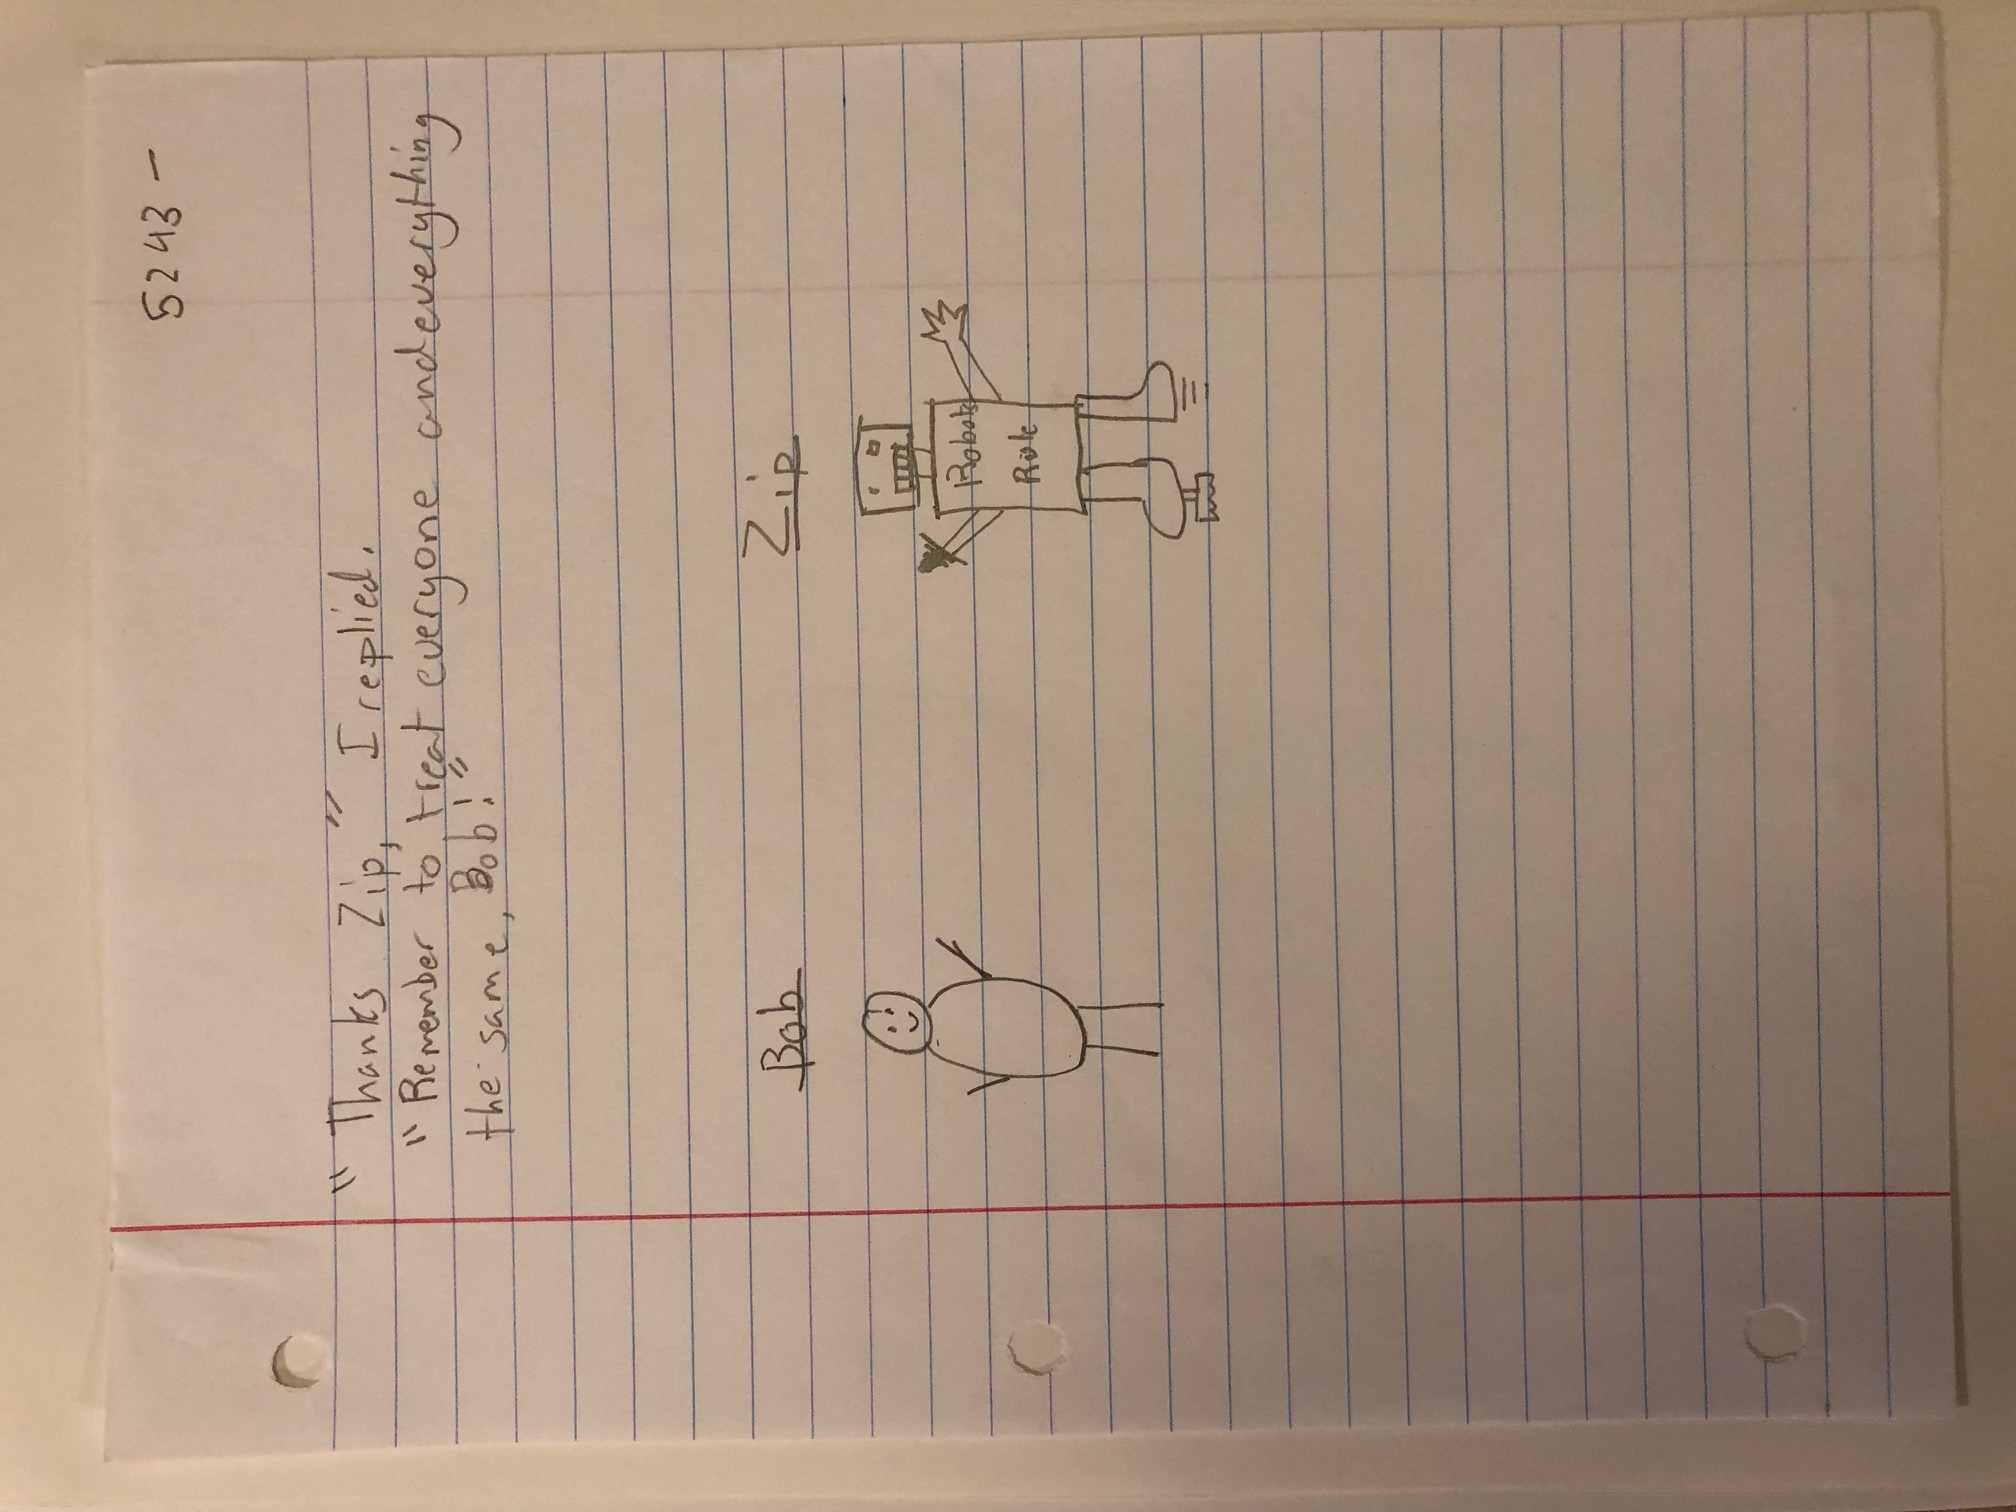 5243-
"Thanks Zip," I replied.
"Remember to treat everyone and everything
the same, Bob!"
Bob
Zip
Robots
Rule